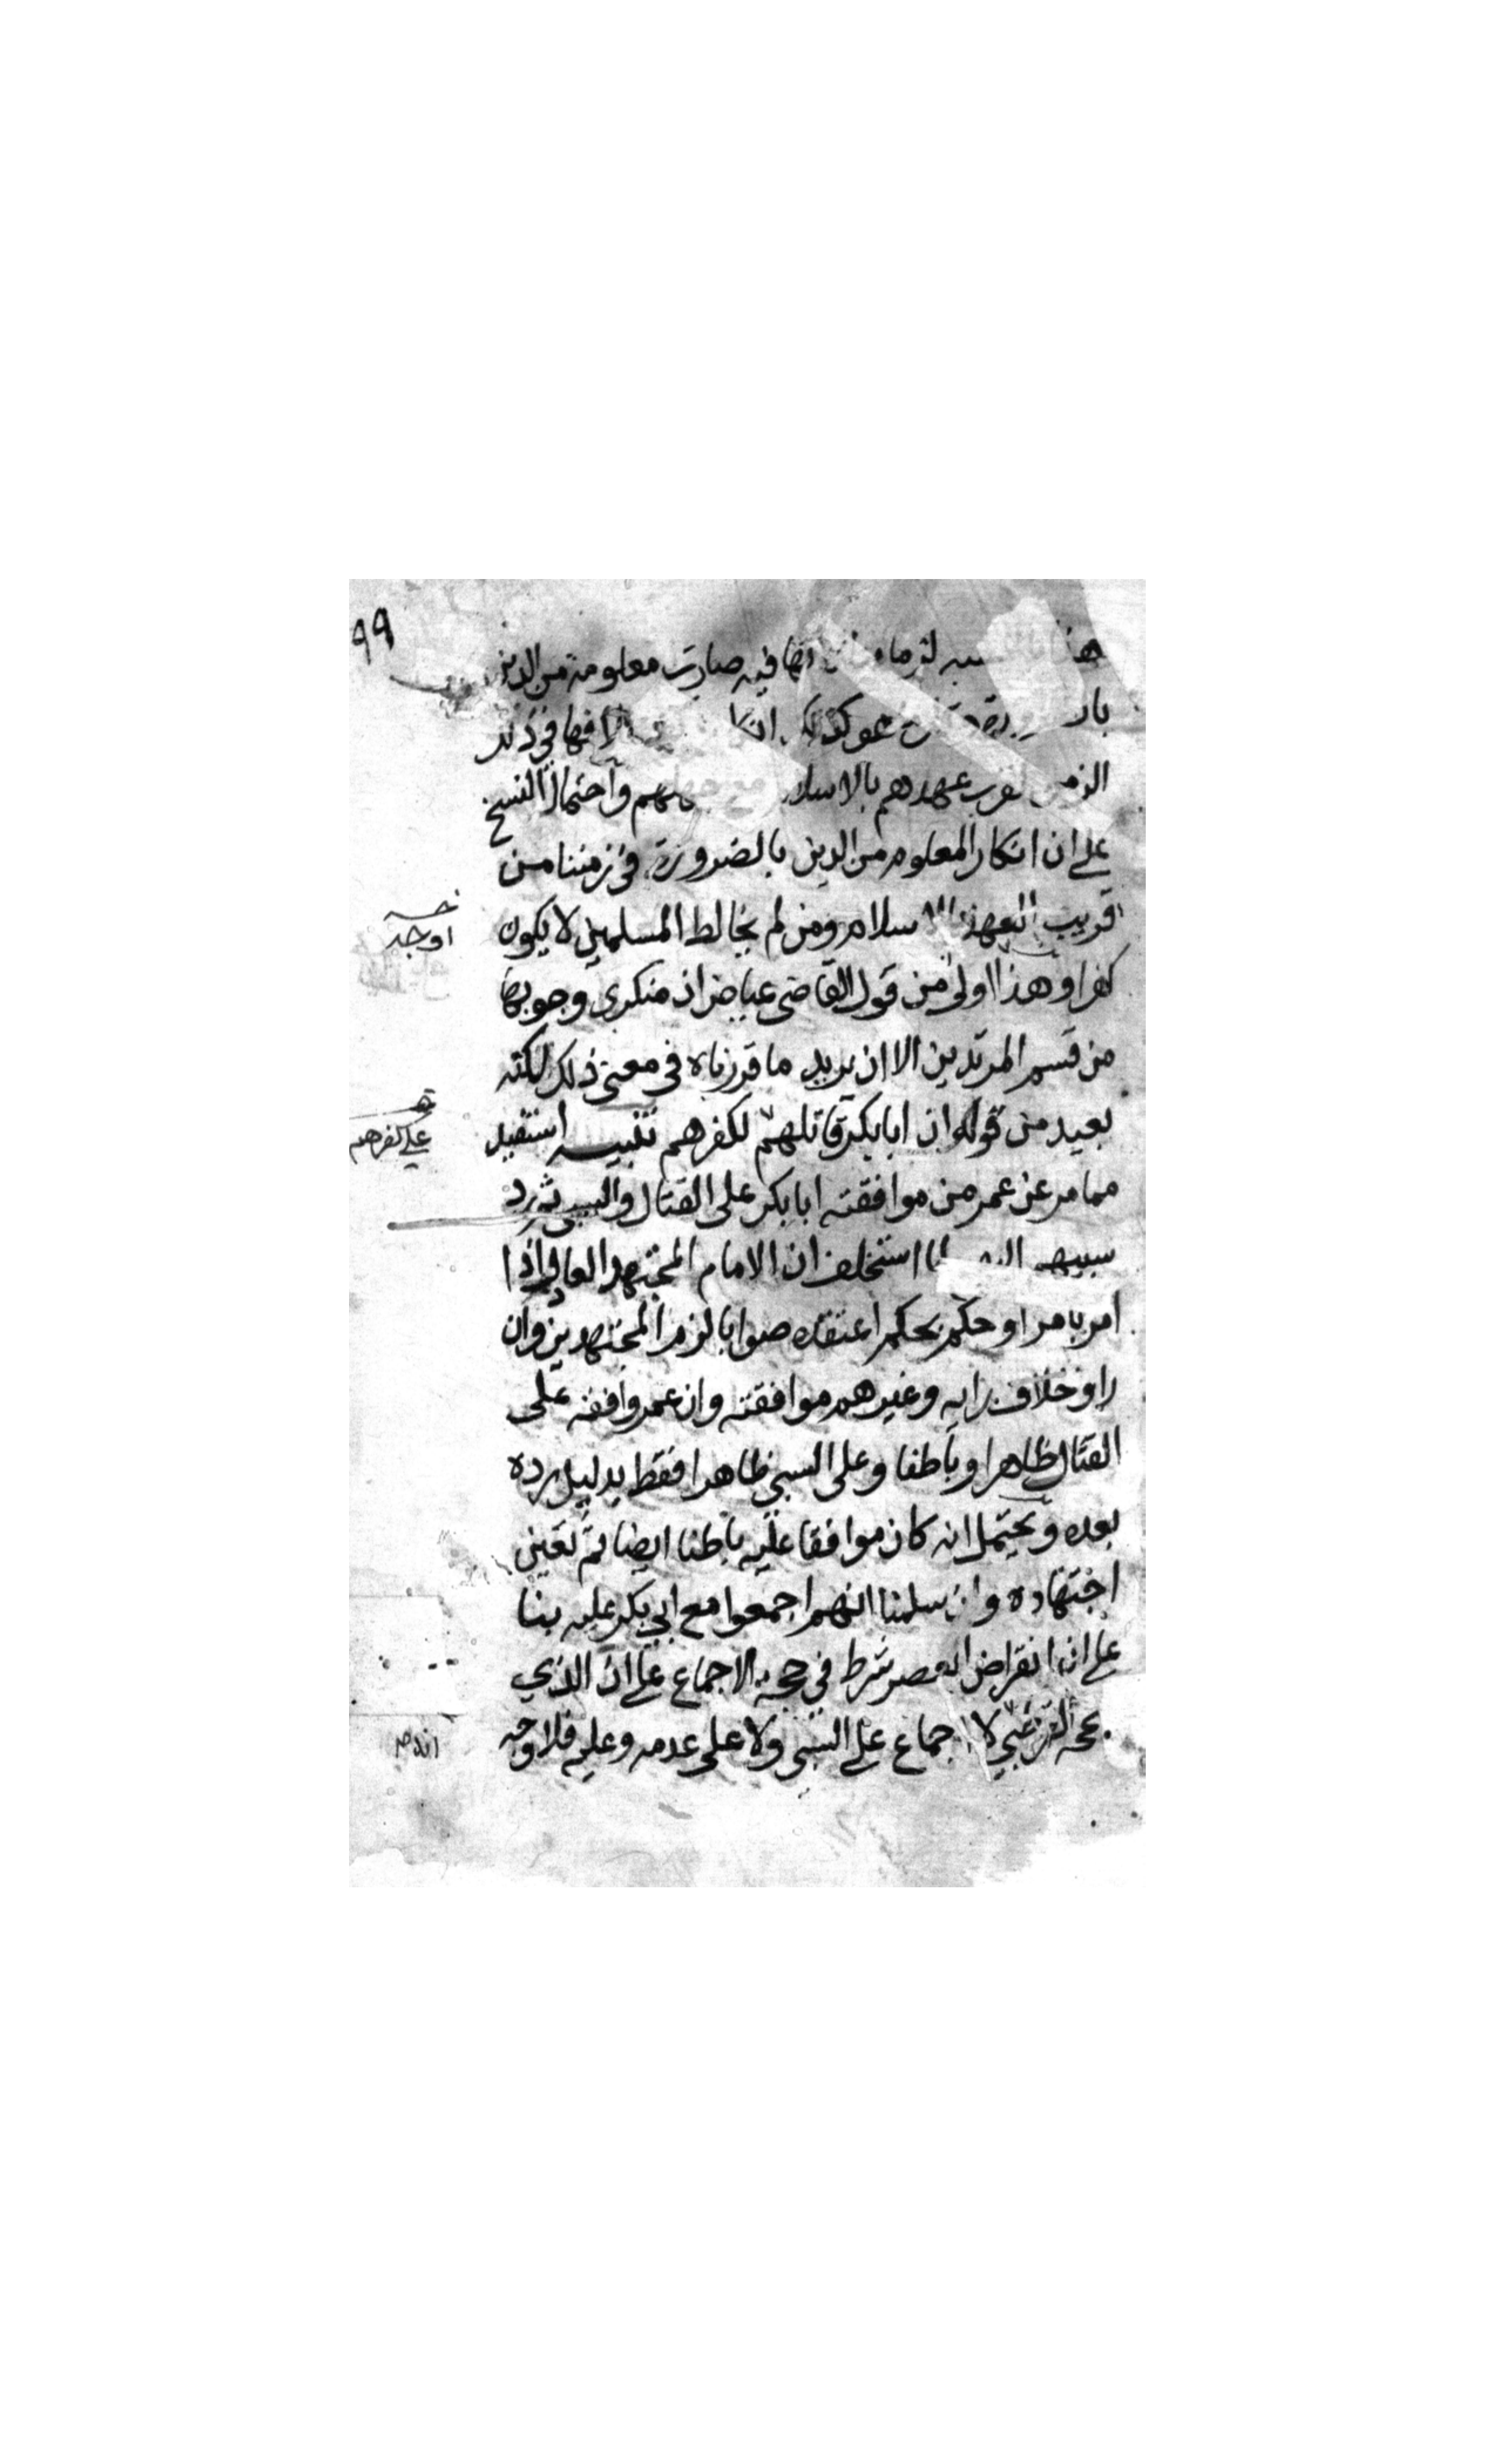 ٩٩
لزماننا فانها فيه صارت معلومة من الدين
الزمن لقرب عهدهم بالاسلام مع جهلهم واحتمال النسخ
على ان انكار المعلوم من الدين بالضرورة في زمننا من
قريب العهد بالاسلام ومن لم يخالط المسلمين لا يكون
كفرا وهذا اولى من قول القاضي عياض ان منكري وجوبها
من قسم المرتدين الا ان يريد ما قررناه في معنى ذلك لكنه
بعيد من قوله ان ابا بكر قاتلهم لكفرهم تنبيه استفيد
مما مر عن عمر من موافقته ابا بكر على القتال والسبي ثم رد
سبيهم لما استخلف ان الامام المجتهد العادل اذا
امر بامر او حكم بحكم اعتقده صوابا لزم المجتهدين وان
راو خلاف رايه وغيرهم موافقته وان عمر وافقه على
القتال ظاهرا وباطنا وعلى السبي ظاهرا فقط بدليل رده
بعده ويحتمل انه كان موافقا عليه باطنا ايضا ثم تغير
اجتهاده وان سلمنا انهم اجمعوا مع ابي بكر عليه بنا
على ان انقراض العصر شرط في حجية الاجماع على ان الذي
لا اجماع على السبي ولا على عدمه وعليه فلا وجه
اوجه
على كفرهم